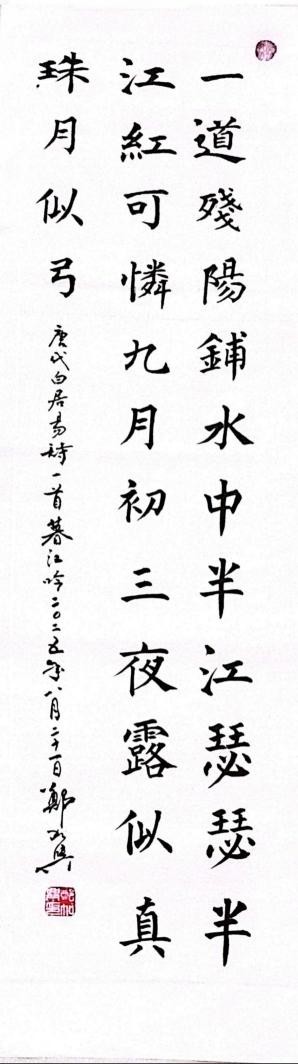 一道殘陽鋪水中半江瑟瑟半
江紅可憐九月初三夜露似真
珠月似弓
唐代白居易詩一首暮江吟二〇二五年八月二十一日鄭